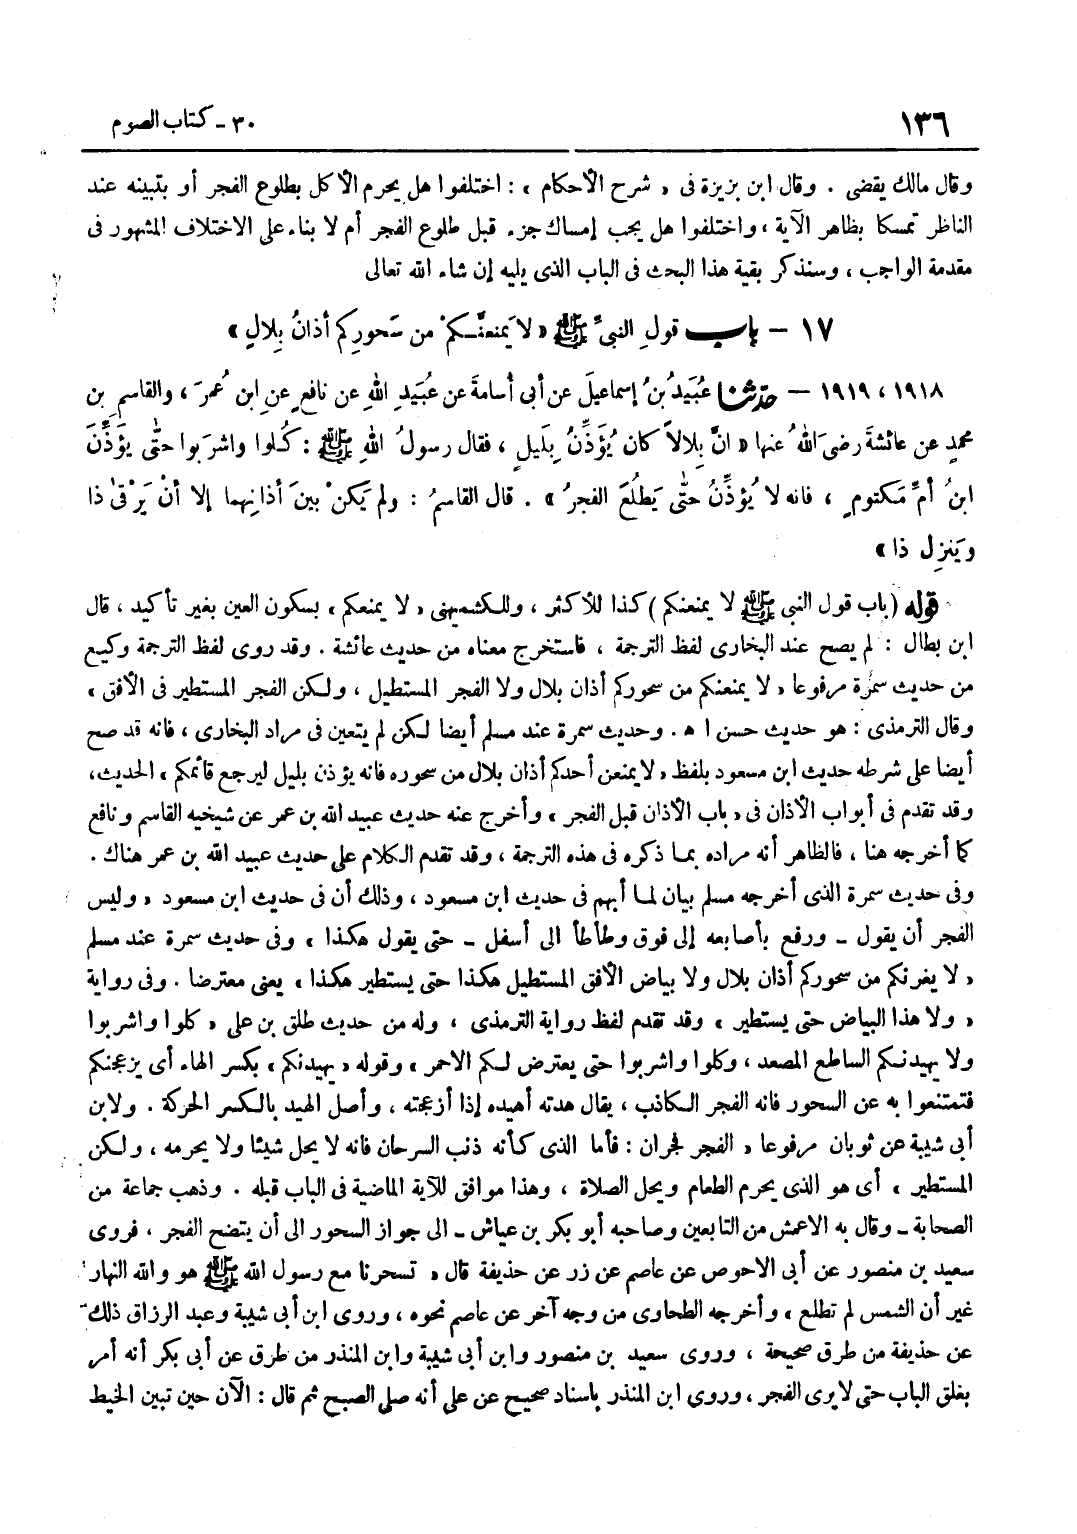 ١٣٦
٣٠ - كتاب الصوم
وقال مالك يقضى . وقال ابن بزيزة فى « شرح الأحكام » : اختلفوا هل يحرم الأكل بطلوع الفجر أو بتبينه عند
الناظر تمسكا بظاهر الآية ، واختلفوا هل يجب إمساك جزء قبل طلوع الفجر أم لا بناء على الاختلاف المشهور فى
مقدمة الواجب ، وسنذكر بقية هذا البحث فى الباب الذى يليه إن شاء الله تعالى
١٧ - باب قولِ النبىِّ ﷺ « لا يَمنعنَّـكمْ من سَحورِكم أذانُ بِلالٍ »
١٩١٨ ، ١٩١٩ - حدّثنا عُبَيدُ بنُ إسماعيلَ عن أبى أسامةَ عن عُبَيدِ اللهِ عن نافعٍ عنِ ابن عُمرَ ، والقاسمِ بنِ
محمدٍ عن عائشةَ رضىَ اللهُ عنها « انَّ بِلالاً كان يُؤَذِّنُ بِليلٍ ، فقال رسولُ اللهِ ﷺ : كُلوا واشرَبوا حتّٰى يؤَذِّنَ
ابنُ أمِّ مَكتومٍ ، فانه لا يُؤذِّنُ حتّٰى يَطلُعَ الفجرُ » . قال القاسمُ : ولم يَكنْ بينَ أذانِهما إلا أنْ يَرْقىٰ ذا
ويَنزِل ذا »
قوله (باب قول النبى ﷺ لا يمنعنكم) كذا للأكثر ، وللكشميهنى « لا يمنعكم » بسكون العين بغير تأكيد ، قال
ابن بطال : لم يصح عند البخارى لفظ الترجمة ، فاستخرج معناه من حديث عائشة . وقد روى لفظ الترجمة وكيع
من حديث سمرة مرفوعا « لا يمنعنكم من سحوركم أذان بلال ولا الفجر المستطيل ، ولكن الفجر المستطير فى الأفق »
وقال الترمذى : هو حديث حسن ا ه . وحديث سمرة عند مسلم أيضا لكن لم يتعين فى مراد البخارى ، فانه قد صح
أيضا على شرطه حديث ابن مسعود بلفظ « لا يمنعن أحدكم أذان بلال من سحوره فانه يؤذن بليل ليرجع قائمكم » الحديث،
وقد تقدم فى أبواب الأذان فى « باب الأذان قبل الفجر » وأخرج عنه حديث عبيد الله بن عمر عن شيخيه القاسم ونافع
كما أخرجه هنا ، فالظاهر أنه مراده بما ذكره فى هذه الترجمة ، وقد تقدم الكلام على حديث عبيد الله بن عمر هناك .
وفى حديث سمرة الذى أخرجه مسلم بيان لما أبهم فى حديث ابن مسعود ، وذلك أن فى حديث ابن مسعود « وليس
الفجر أن يقول - ورفع بأصابعه إلى فوق وطأطأ الى أسفل - حتى يقول هكذا » وفى حديث سمرة عند مسلم
« لا يغرنكم من سحوركم أذان بلال ولا بياض الأفق المستطيل هكذا حتى يستطير هكذا » يعنى معترضا . وفى رواية
« ولا هذا البياض حتى يستطير » وقد تقدم لفظ رواية الترمذى ، وله من حديث طلق بن على « كلوا واشربوا
ولا يهيدنكم الساطع المصعد ، وكلوا واشربوا حتى يعترض لكم الاحمر » وقوله « يهيدنكم » بكسر الهاء أى يزعجنكم
فتمتنعوا به عن السحور فانه الفجر الكاذب ، يقال هدته أهيده إذا أزعجته ، وأصل الهيد بالكسر الحركة . ولابن
أبى شيبة عن ثوبان مرفوعا « الفجر فجران : فأما الذى كأنه ذنب السرحان فانه لا يحل شيئا ولا يحرمه ، ولكن
المستطير » أى هو الذى يحرم الطعام ويحل الصلاة ، وهذا موافق للآية الماضية فى الباب قبله . وذهب جماعة من
الصحابة - وقال به الاعمش من التابعين وصاحبه أبو بكر بن عياش - الى جواز السحور الى أن يتضح الفجر ، فروى
سعيد بن منصور عن أبى الاحوص عن عاصم عن زر عن حذيفة قال « تسحرنا مع رسول الله ﷺ هو والله النهار
غير أن الشمس لم تطلع » وأخرجه الطحاوى من وجه آخر عن عاصم نحوه ، وروى ابن أبى شيبة وعبد الرزاق ذلك
عن حذيفة من طرق صحيحة ، وروى سعيد بن منصور وابن أبى شيبة وابن المنذر من طرق عن أبى بكر أنه أمر
بغلق الباب حتى لا يرى الفجر ، وروى ابن المنذر باسناد صحيح عن على أنه صلى الصبح ثم قال : الآن حين تبين الخيط